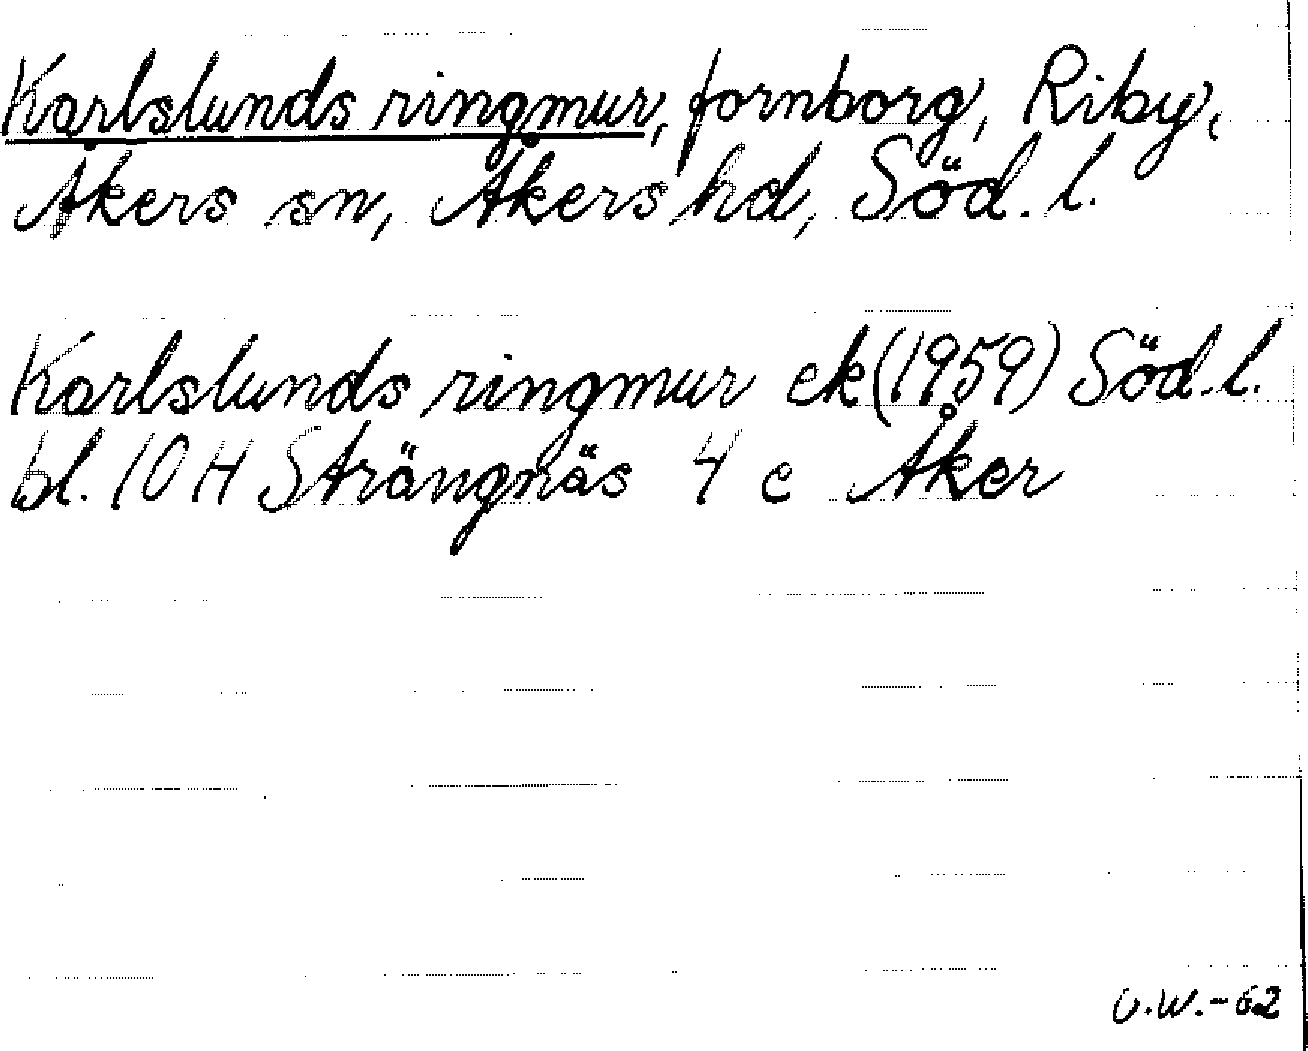 Karlslunds ringmur, fornborg, Riby,
Åkers sn, Åkers hd, Söd. l.
Karlslunds ringmur ek (1959) Söd. l.
bl. 10 H Strängnäs 4 e Åker
U.W.-62